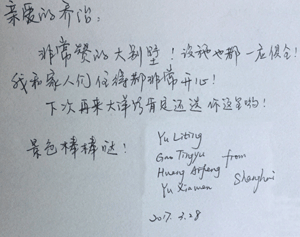 亲爱的乔治：
非常赞的大别墅！设施也都一应俱全！
我和家人们住得都非常开心！
下次再来大洋路肯定还选你这里哟！
景色棒棒哒！
Yu Liting
Gao Tingyu
Huang Apfeng
Yu Xiawen
from Shanghai
2017.3.28